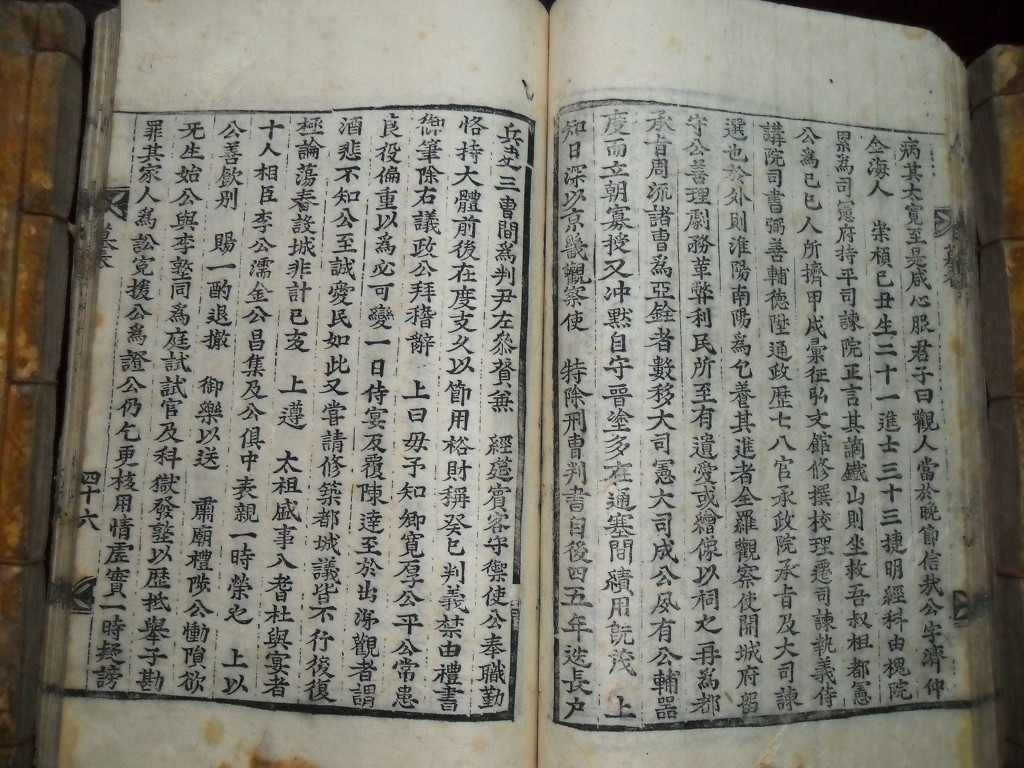 病其太寬至是咸心服君子曰觀人當於晩節信哉公字濟仲
金海人 崇禎己丑生二十一進士三十三捷明經科由槐院
累爲司憲府持平司諫院正言其謫鐵山則坐救吾叔相都憲
公爲己巳人所擠甲戌彙征弘文館修撰校理遷司諫執義侍
講院司書弼善輔德陞通政歷七八官承政院承旨及大司諫
選也於外則淮陽南陽爲乞養其進者全羅觀察使開城府留
守公善理劇務革弊利民所至有遺愛或繪像以祠之再為都
承旨周流諸曹爲亞銓者數移大司憲大司成公夙有公輔器
度而立朝寡援又冲默自守晉塗多在通塞間績用旣茂 上
知日深以京畿觀察使 特除刑曹判書自後四五年迭長戶
兵 三曹間爲判尹左叅贊兼 經筵賓客守禦使公奉職勤
恪持大體前後在度支久以節用裕財稱癸巳判義禁由禮書
御筆除右議政公拜稽辭 上曰毋予知卿寬厚公平公常患
良役偏重以爲必可變一日侍宴及覆陳達至於出涕觀者謂
酒悲不知公至誠愛民如此又嘗請修築都城議皆不行後復
極論蕩春設城非計己亥 上遵 太祖盛事入耆社與宴者
十人相臣李公濡金公昌集及公俱中表親一時榮之 上以
公善飮別 賜一酌退撤 御樂以送 肅廟禮陟公慟隕欲
死生始公與李墪同爲庭試試官及科獄發墪以歷抵舉子勘
罪其家人爲訟寃援公爲證公仍乞更核用情虛實一時疑謗
四十六